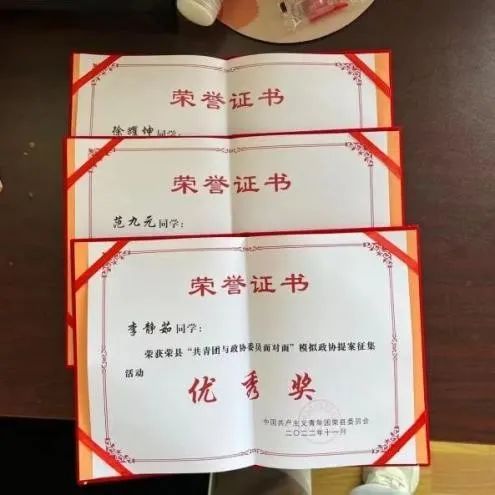 荣誉证书
徐耀坤同学:
荣誉证书
范九元同学:
荣誉证书
李静茹同学:
荣获荣县“共青团与政协委员面对面”模拟政协提案征集
活动
优秀奖
中国共产主义青年团荣县委员会
二〇二二年十一月